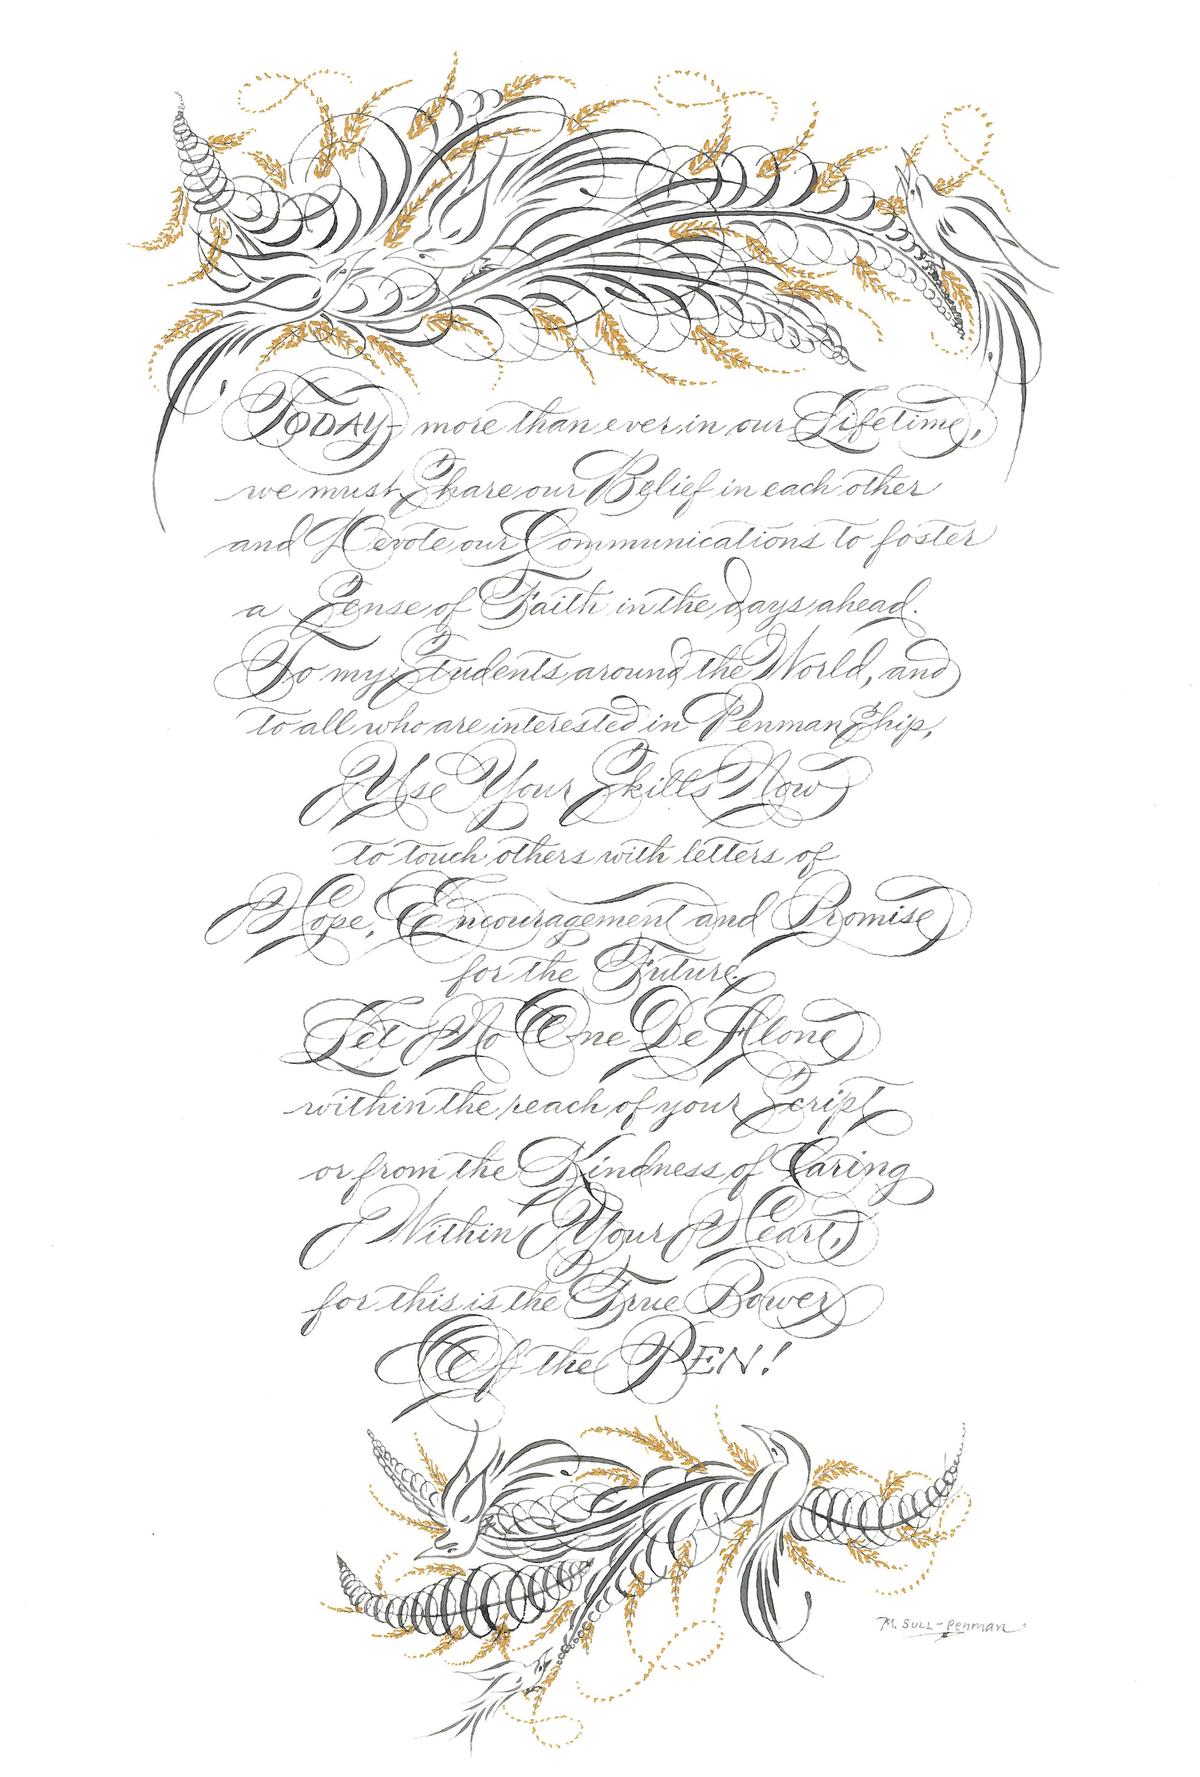 TODAY- more than ever in our Lifetime,
we must Share our Belief in each other
and Devote our Communications to foster
a Sense of Faith in the days ahead.
To my Students around the World, and
to all who are interested in PenmanShip,
Use Your Skills Now
to touch others with letters of
Hope, Encouragement and Promise
for the Future.
Let No One Be Alone
within the reach of your Script
or from the Kindness of Caring
Within Your Heart,
for this is the True Power
Of the PEN!
M. SULL-Penman